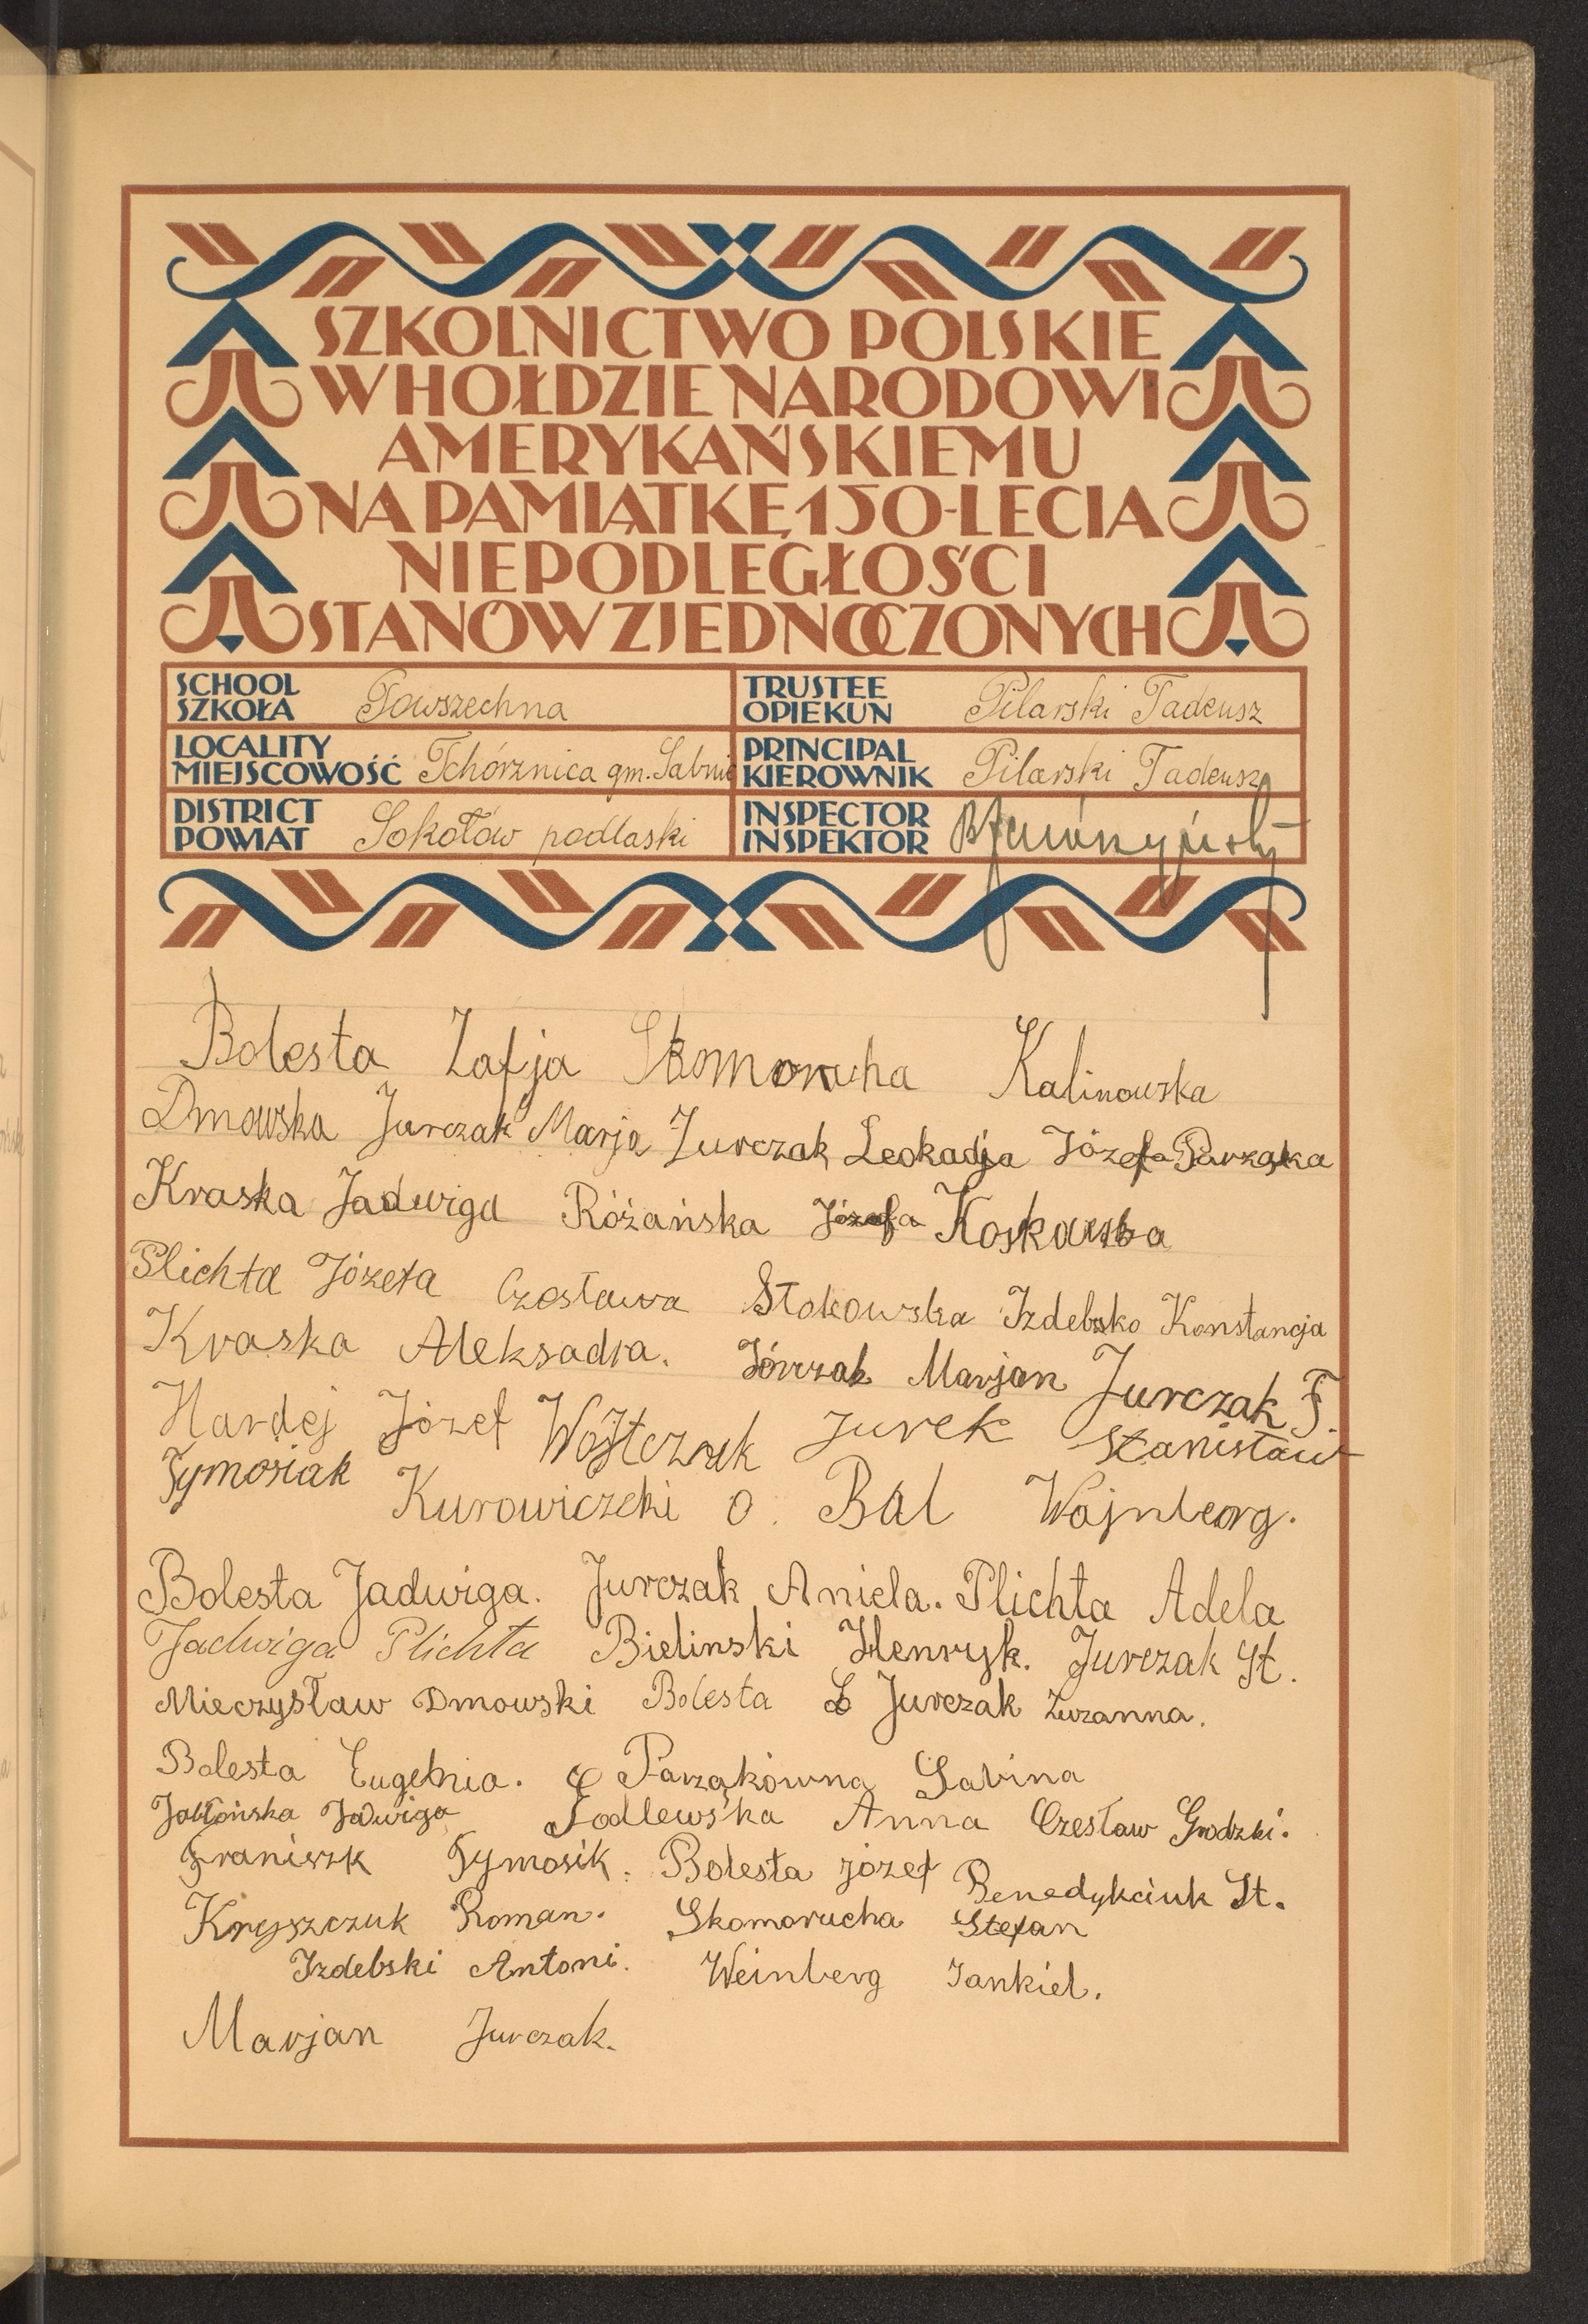 SZKOLNICTWO POLSKIE
W HOŁDZIE NARODOWI
AMERYKAŃSKIEMU
NA PAMIĄTKĘ 150-LECIA
NIEPODLEGŁOŚCI
STANÓW ZJEDNOCZONYCH
SCHOOL
SZKOŁA Powszechna
TRUSTEE
OPIEKUN Pilarski Tadeusz
LOCALITY
MIEJSCOWOŚĆ Tchórznica gm. Sabnie
PRINCIPAL
KIEROWNIK Pilarski Tadeusz
DISTRICT
POWIAT Sokołów podlaski
INSPECTOR
INSPEKTOR
Bolesta Zofja Skomorucha Kalinowska
Dmowska Jurczak Marja Jurczak Leokadja Józefa Parzątka
Kraska Jadwiga Różańska Józefa Koskowska
Plichta Józefa Czesława Stokowska Izdebsko Konstancja
Kraska Aleksadra. Jórczak Marjan Jurczak F.
Hardej Józef Wójtczuk Jurek Stanisław
Tymosiak Kurowiczcki O. Bal Wajnberg.
Bolesta Jadwiga. Jurczak Aniela. Plichta Adela
Jadwiga Plichta Bielinski Henryk. Jurczak St.
Mieczysław Dmowski Bolesta L Jurczak Zuzanna.
Bolesta Eugenia. Parząkówna Sabina
Jabłońska Jadwiga Podlewska Anna Czesław Grodzki.
Franiszk Tymosik. Bolesta józef Benedykciuk St.
Kryszczuk Roman. Skomorucha Stefan
Izdebski Antoni. Weinberg Jankiel.
Marjan Jurczak.